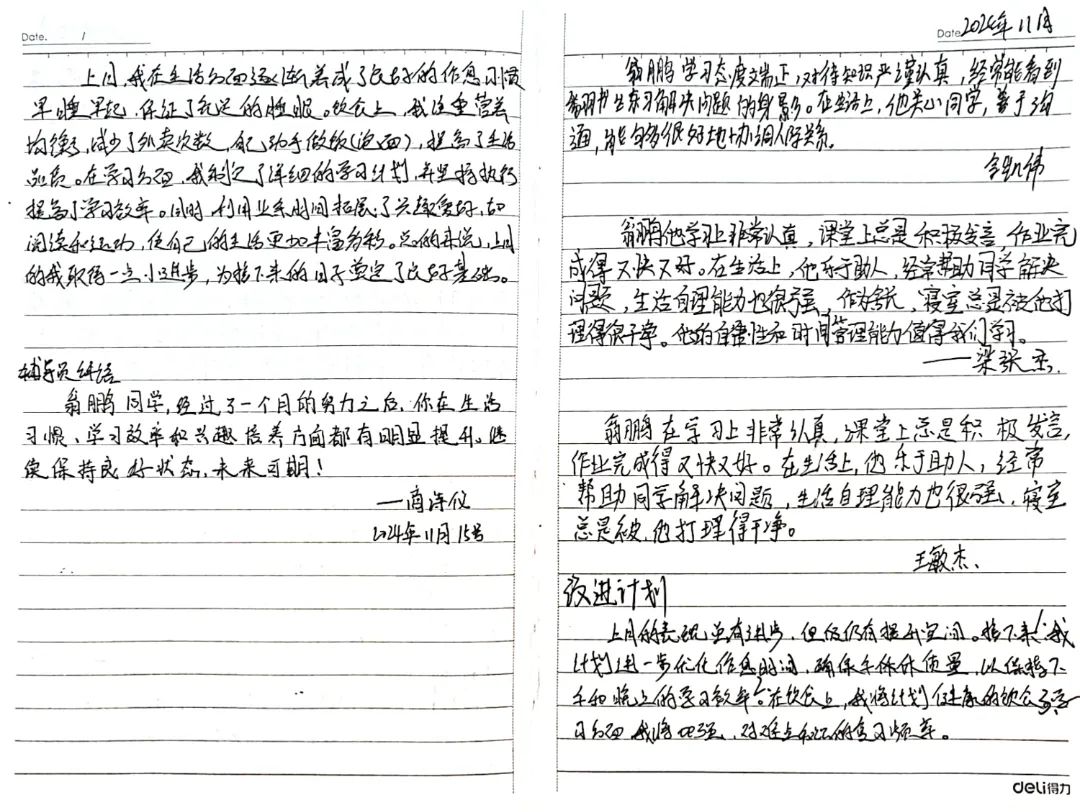 Date. 1
上月,我在生活方面逐渐养成了良好的作息习惯
早睡早起,保证了充足的睡眠。饮食上,我注重营养
均衡,减少了外卖次数,自己动手做饭(泡面),提高了生活
品质。在学习方面,我制定了详细的学习计划,并坚持执行
提高了学习效率。同时,利用业余时间拓展了兴趣爱好,如
阅读和运动,使自己的生活更加丰富多彩。总的来说,上月
的我取得一点小进步,为接下来的日子奠定了良好基础。
辅导员结语
翁鹏同学,经过了一个月的努力之后,你在生活
习惯、学习效率和兴趣培养方面都有明显提升。继
续保持良好状态,未来可期!
——商诗仪
2024年11月15号
Date 2024年11月
翁鹏学习态度端正,对待知识严谨认真,经常能看到
翁鹏书生东习解决问题的身影。在生活上,他关心同学,善于沟
通,能够很好地协调人际关系。
凯伟
翁鹏他学习上非常认真,课堂上总是积极发言,作业完
成得又快又好。在生活上,他乐于助人,经常帮助同学解决
问题,生活自理能力也很强,作为舍长,寝室总是被他打
理得很干净。他的自律性和时间管理能力值得我们学习。
——梁
翁鹏在学习上非常认真,课堂上总是积极发言,
作业完成得又快又好。在生活上,他乐于助人,经常
帮助同学解决问题,生活自理能力也很强,寝室
总是被他打理得干净。
王敏杰.
改进计划
上月的表现虽有进步,但仍仍有提升空间。接下来,我
计划进一步优化作息时间,确保午休休质量,以保持下
午和晚上的学习效率。在饮食上,我将计划健康的饮食,学
习方面,我将加强,对难点知识的复习频率。
deli得力